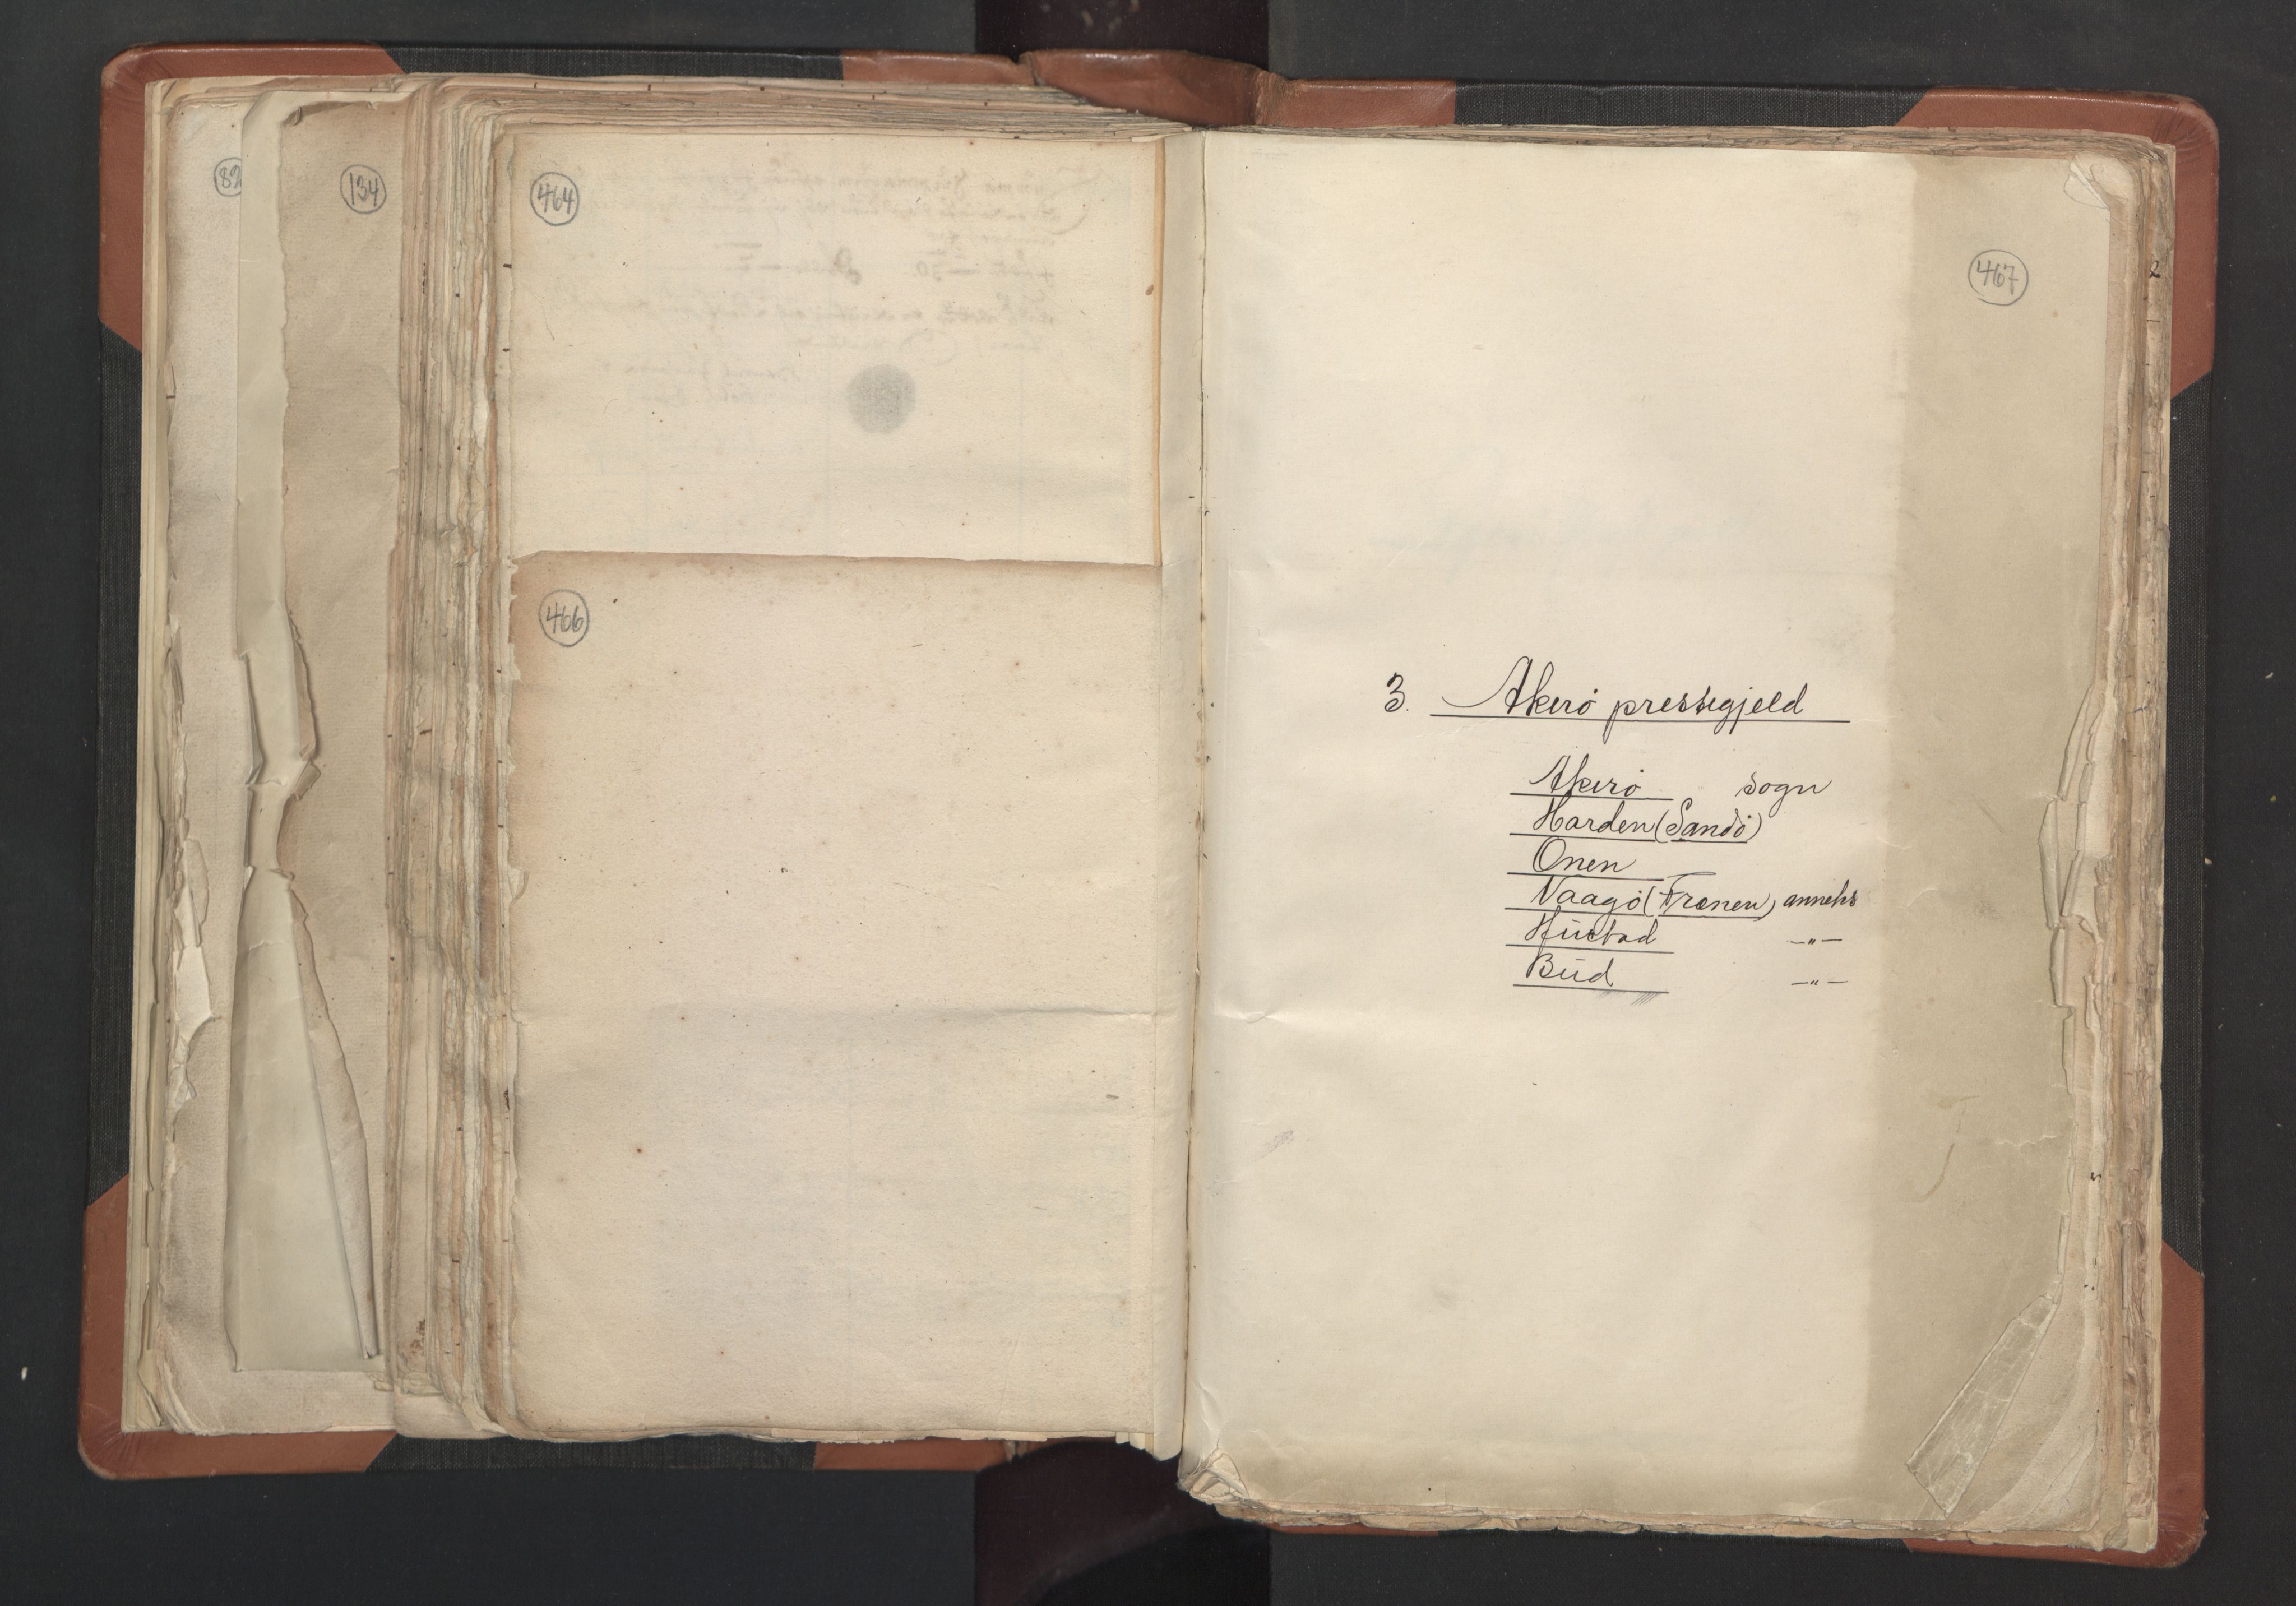 82
134
464
466
467
3. Akerö prestegjeld
Akerö sogn
Harden (Sandö)
Onen
Vaagö (Frænen) anneks
Hustad —〃—
Bud —〃—